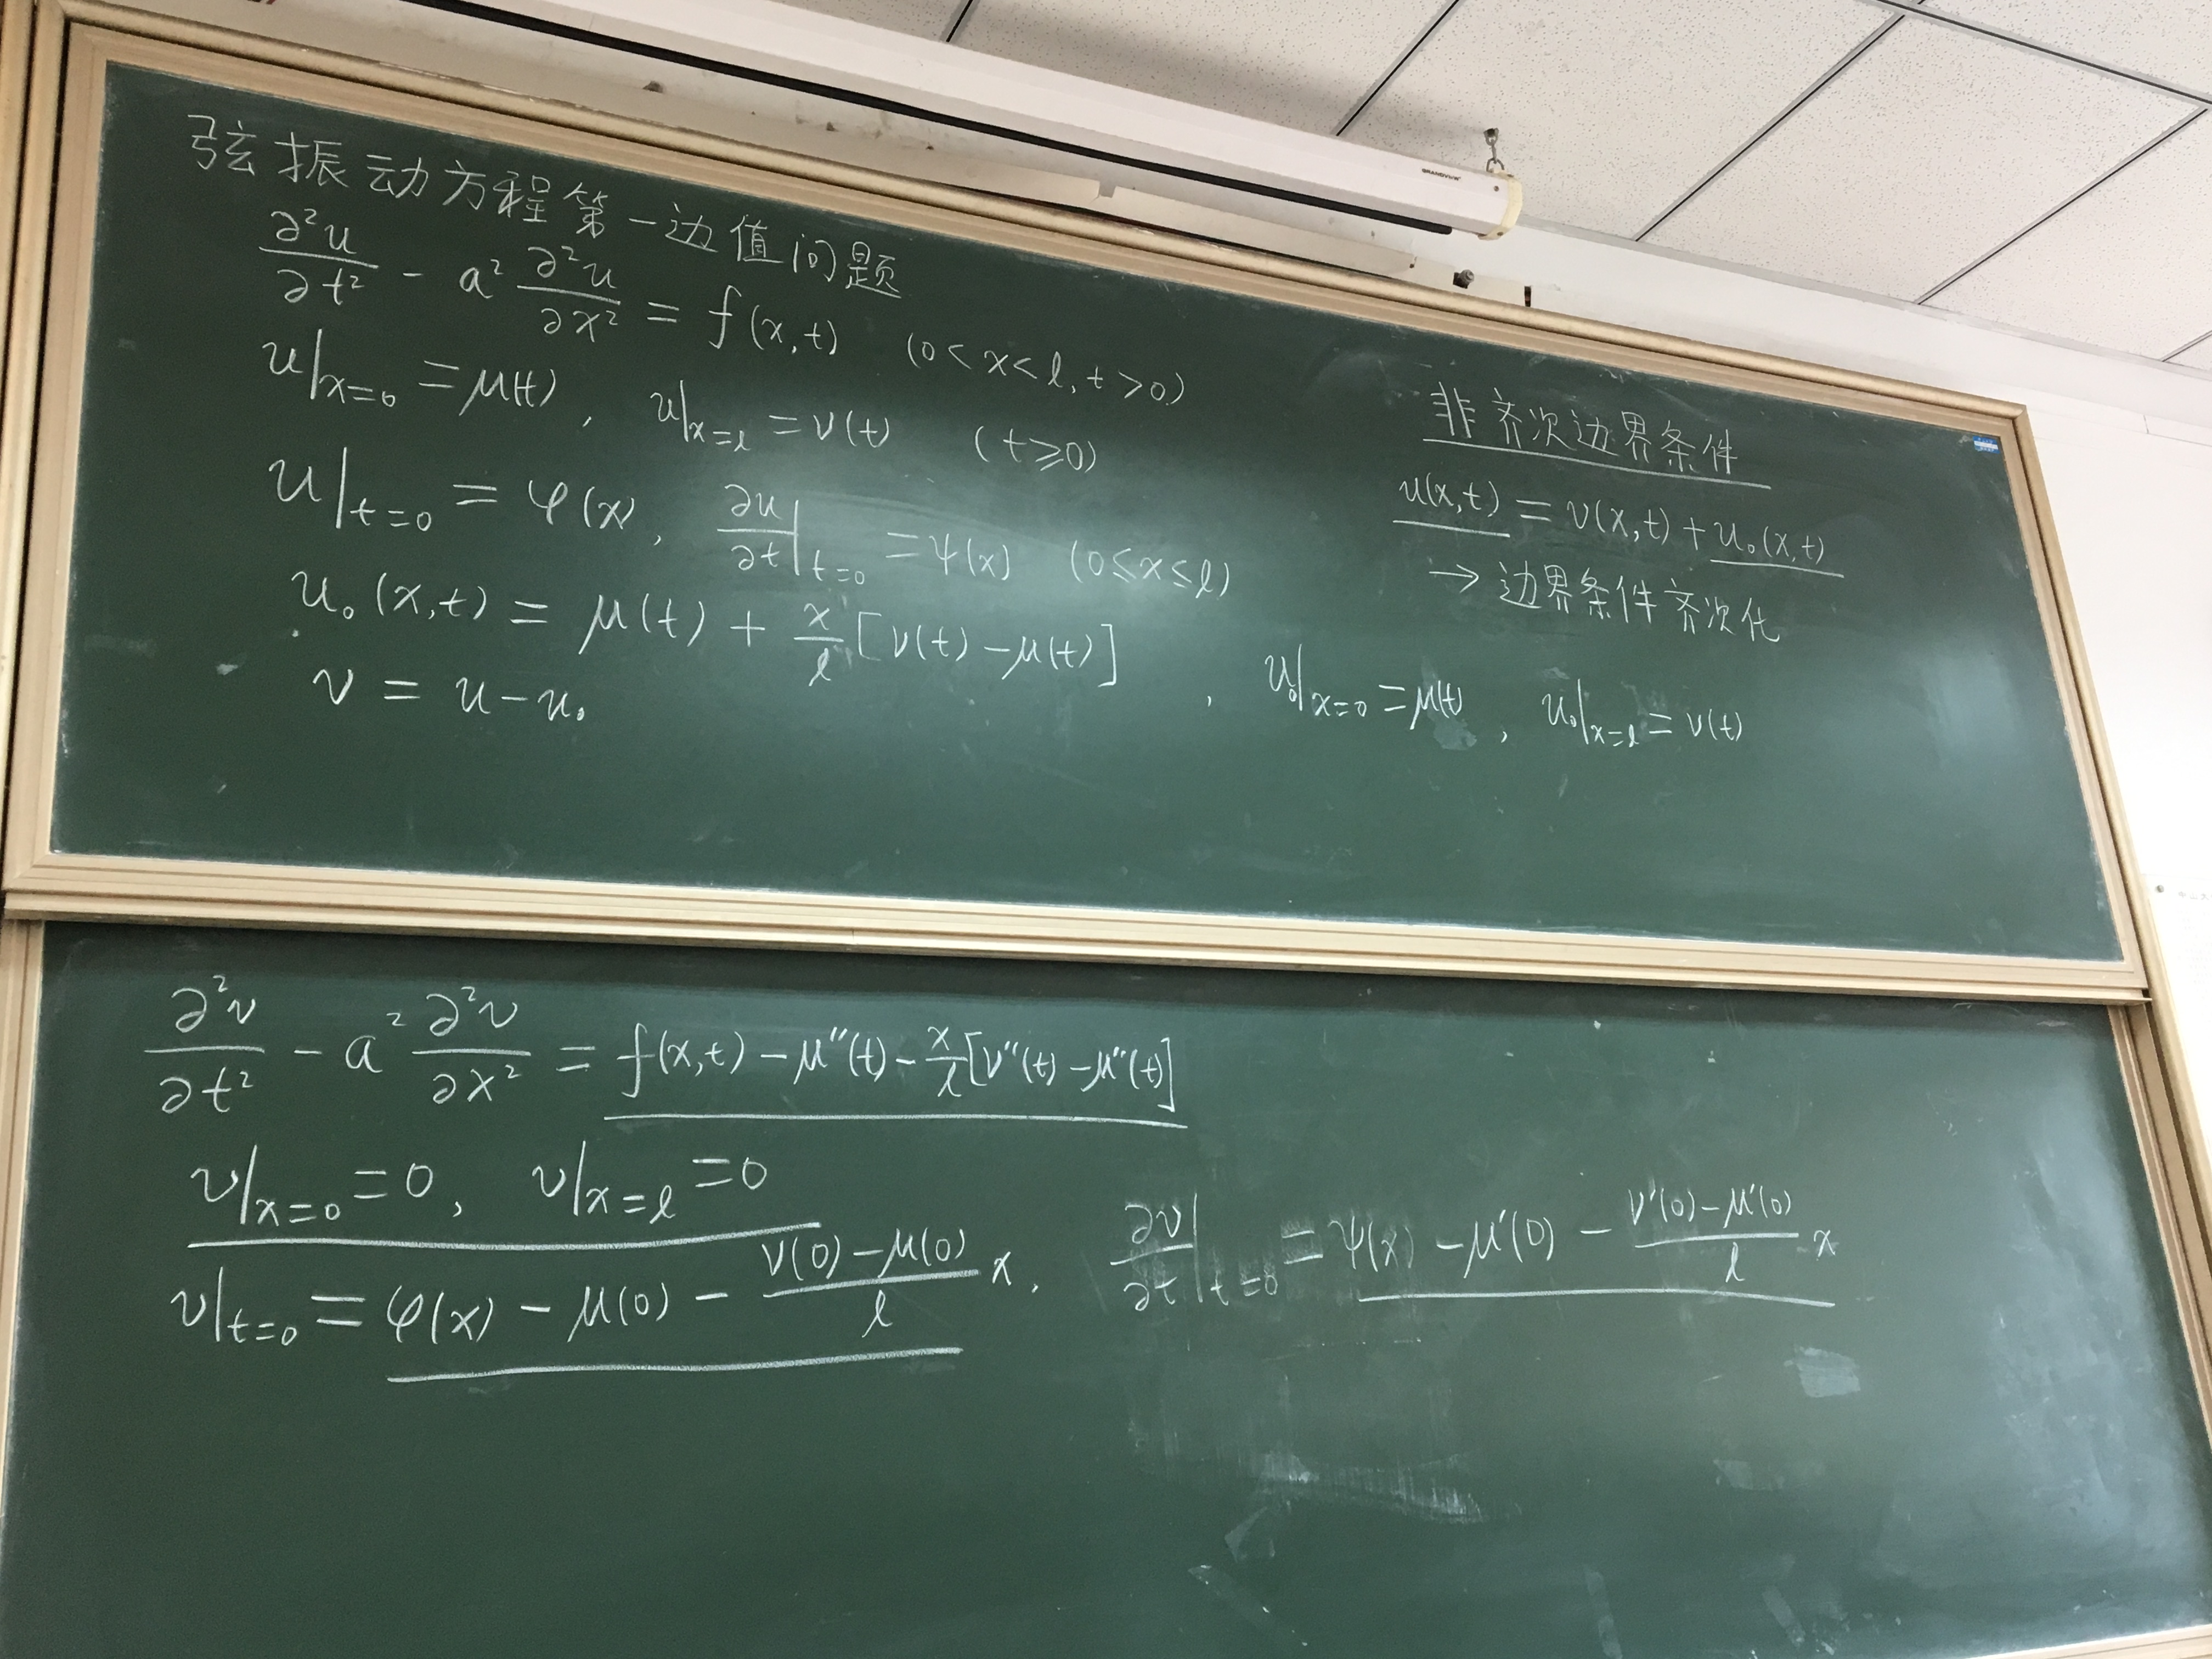 弦振动方程第一边值问题
∂²u/∂t² - a² ∂²u/∂x² = f(x,t) (0<x<l, t>0)
u|x=0 = μ(t), u|x=l = ν(t) (t≥0)
u|t=0 = φ(x), ∂u/∂t|t=0 = ψ(x) (0≤x≤l)
u₀(x,t) = μ(t) + x/l [ν(t) - μ(t)], u₀|x=0 = μ(t), u₀|x=l = ν(t)
v = u - u₀
非齐次边界条件
u(x,t) = v(x,t) + u₀(x,t)
→ 边界条件齐次化
∂²v/∂t² - a² ∂²v/∂x² = f(x,t) - μ''(t) - x/l [ν''(t) - μ''(t)]
v|x=0 = 0, v|x=l = 0
v|t=0 = φ(x) - μ(0) - (ν(0) - μ(0))/l x, ∂v/∂t|t=0 = ψ(x) - μ'(0) - (ν'(0) - μ'(0))/l x
GRANDVIEW